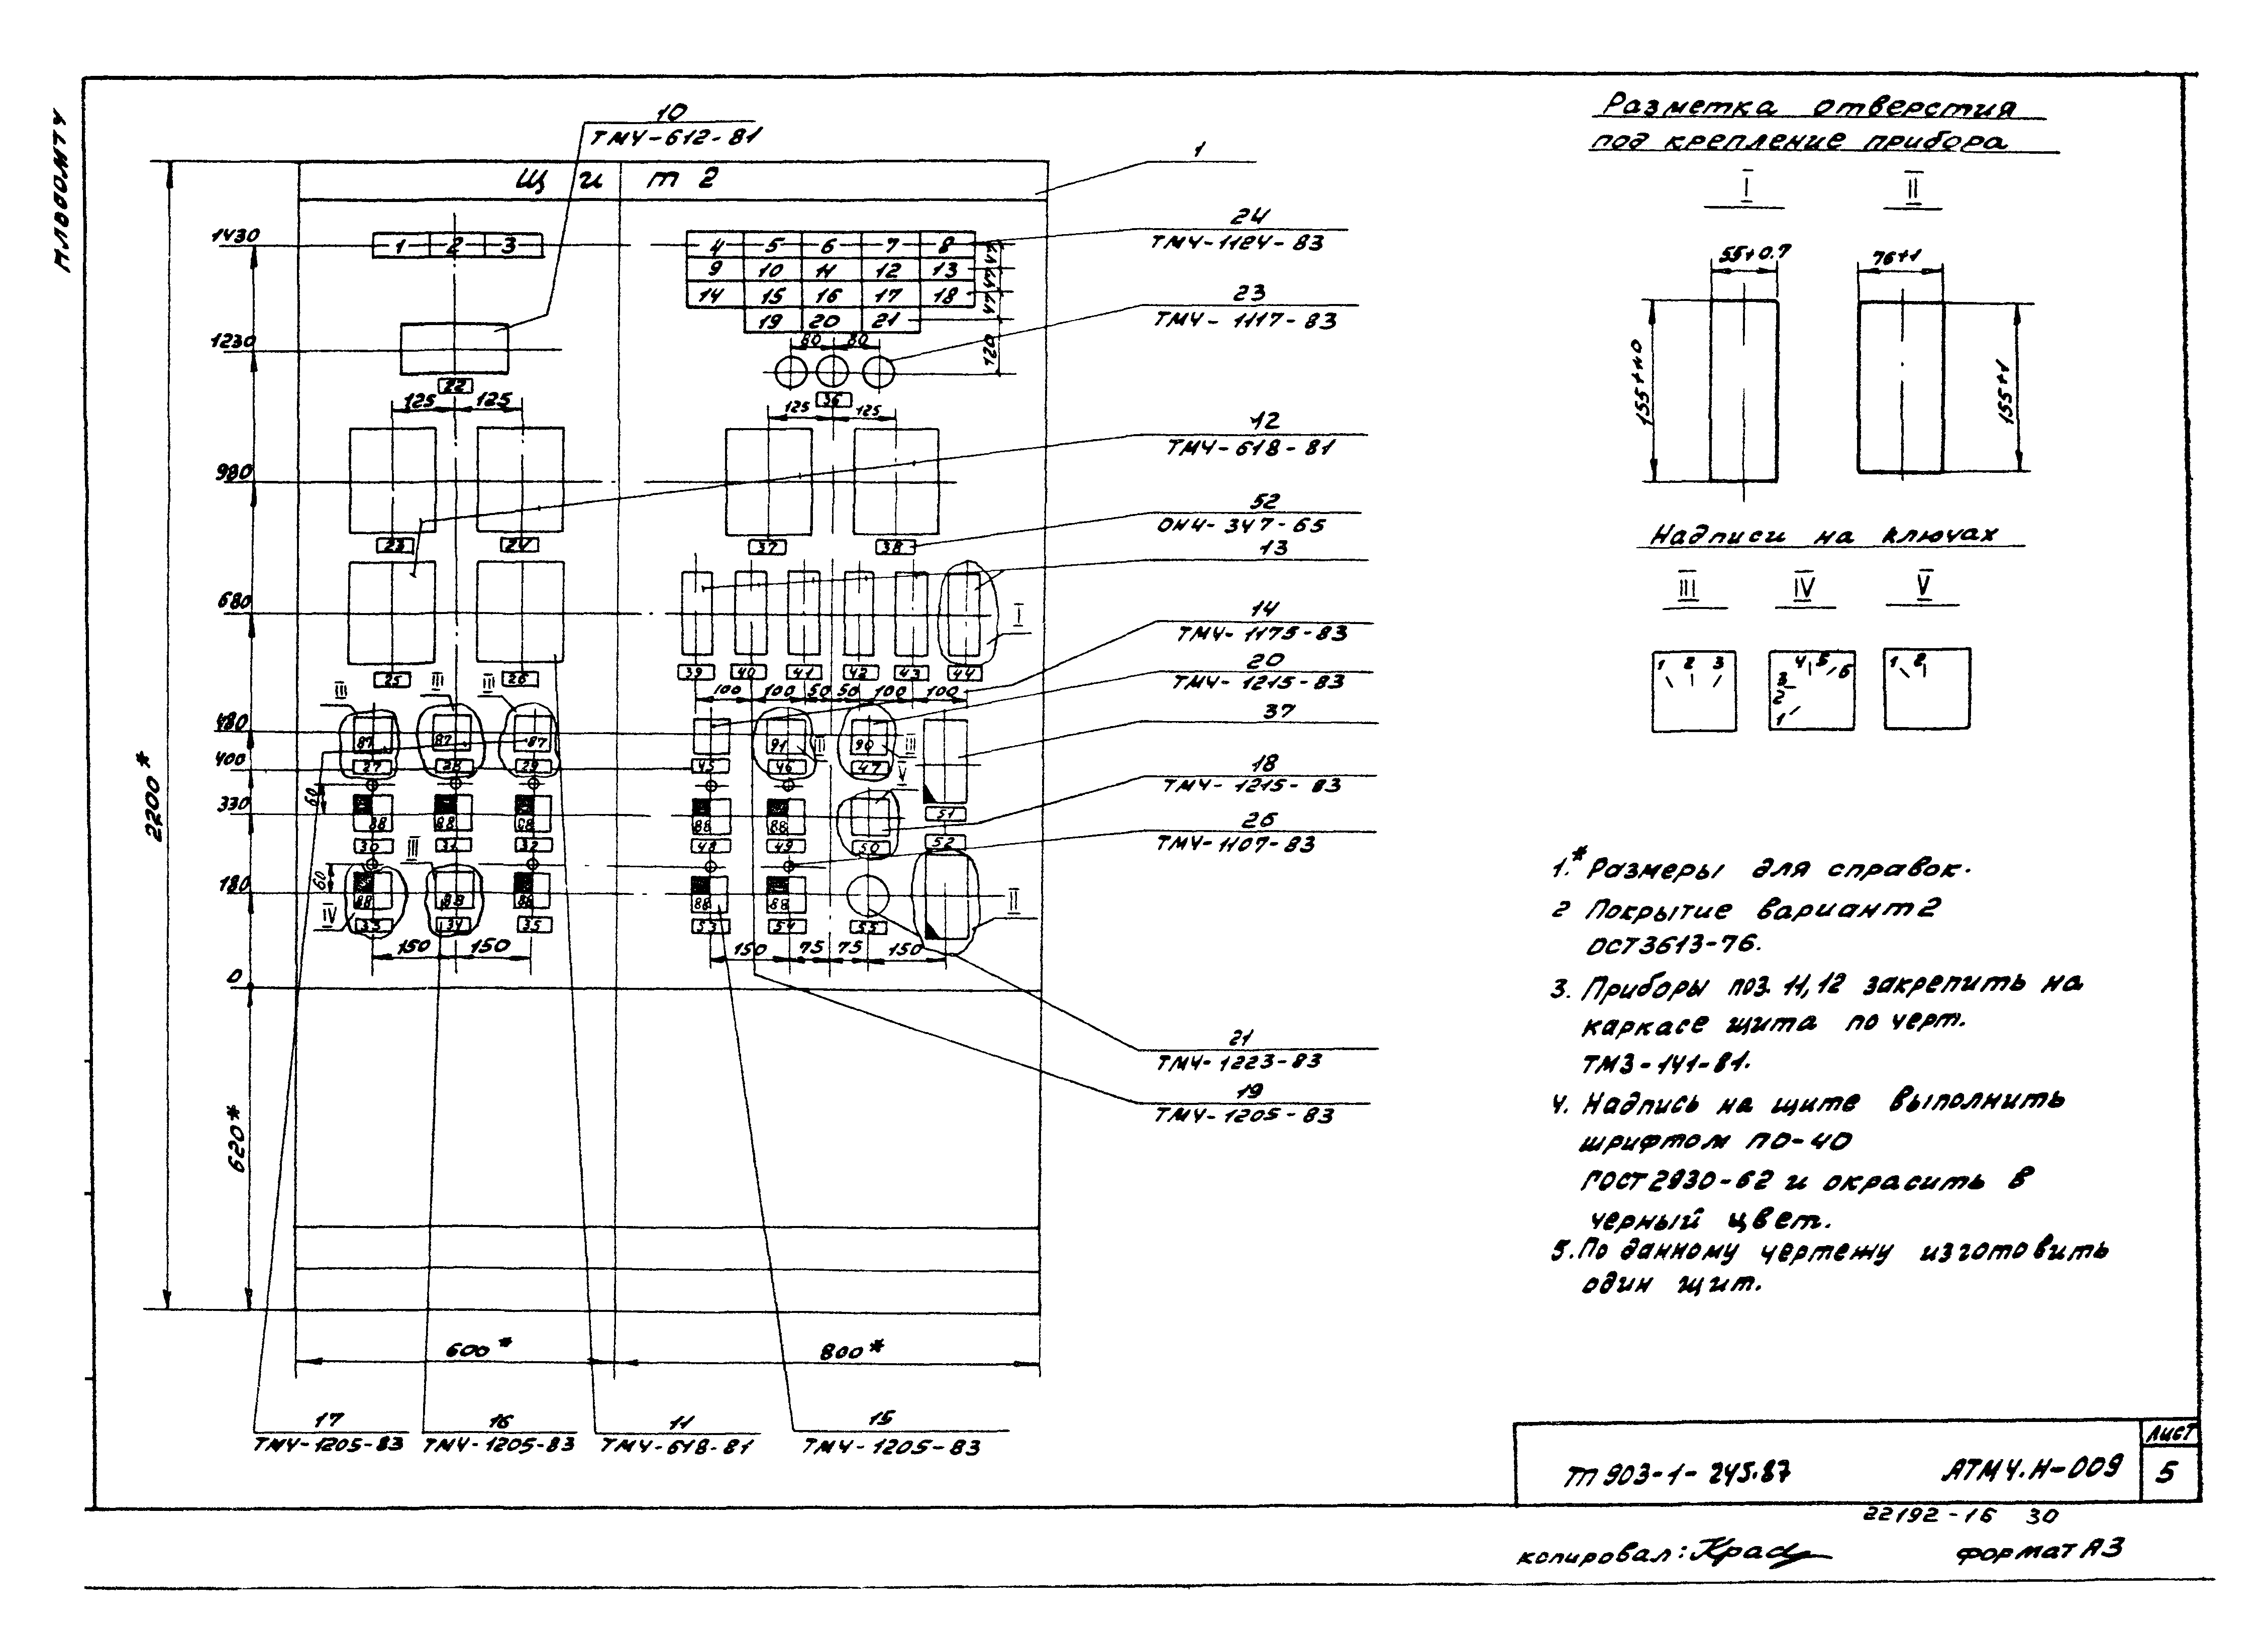 10
ТМЧ-612-81
Щ и т 2
1
1430
1 2 3
4 5 6 7 8
9 10 11 12 13
14 15 16 17 18
19 20 21
44 44 44
120
24
ТМЧ-1124-83
23
ТМЧ-1117-83
1230
22
80 80
36
125 125
125 125
12
ТМЧ-618-81
980
23 24
37 38
52
ОНЧ-347-65
13
680
I
25 26
39 40 41 42 43 44
14
ТМЧ-1175-83
20
ТМЧ-1215-83
100 100 50 50 100 100
III III III
37
480
87 87 87
91 III 90 III
400
27 28 29
45 46 47
V
18
ТМЧ-1215-83
60
330
88 88 88
88 88
51
30 31 32
48 49 50 52
26
ТМЧ-1107-83
III
60
180
88 88 88
88 88
IV
II
33 34 35
53 54 55
150 150
150 75 75 150
0
21
ТМЧ-1223-83
19
ТМЧ-1205-83
2200*
620*
600* 800*
17
ТМЧ-1205-83
16
ТМЧ-1205-83
11
ТМЧ-618-81
15
ТМЧ-1205-83
Разметка отверстия
под крепление прибора
I II
55+0.7 76+1
155+1
Надписи на ключах
III IV V
1 2 3
1 2 3 4 5 6
1 2
1.* Размеры для справок.
2 Покрытие вариант 2
ОСТ3613-76.
3. Приборы поз. 11, 12 закрепить на
каркасе щита по черт.
ТМ3-141-81.
4. Надпись на щите выполнить
шрифтом ПО-40
ГОСТ2930-62 и окрасить в
черный цвет.
5. По данному чертежу изготовить
один щит.
ТП 903-1-245.87 АТМЧ.Н-009
Лист
5
22192-16 30
копировал: формат А3